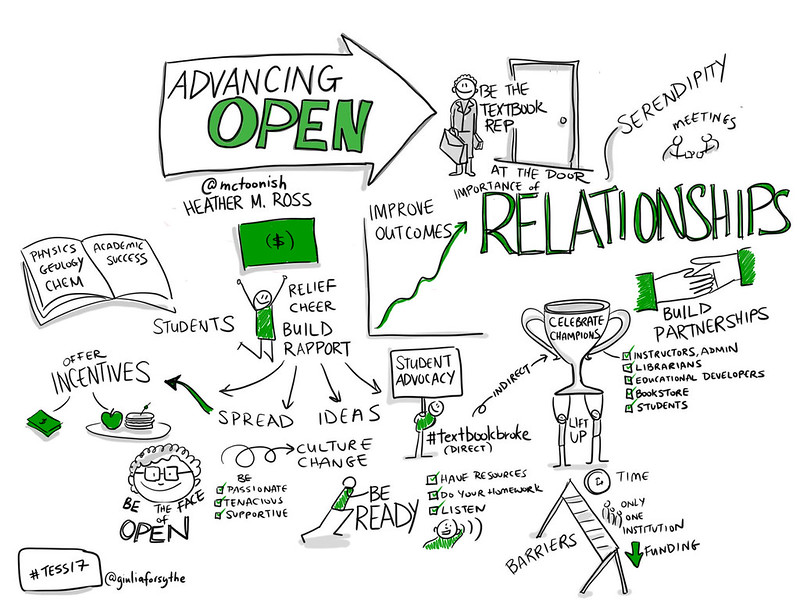 ADVANCING
OPEN
@mctoonish
HEATHER M. ROSS
BE THE
TEXTBOOK
REP
AT THE DOOR
SERENDIPITY
MEETINGS
IMPORTANCE of
RELATIONSHIPS
IMPROVE
OUTCOMES
PHYSICS
GEOLOGY
CHEM
ACADEMIC
SUCCESS
($)
STUDENTS
RELIEF
CHEER
BUILD
RAPPORT
OFFER
INCENTIVES
SPREAD IDEAS
CULTURE
CHANGE
STUDENT
ADVOCACY
#textbookbroke
(DIRECT)
INDIRECT
CELEBRATE
CHAMPIONS
LIFT
UP
BUILD
PARTNERSHIPS
INSTRUCTORS, ADMIN
LIBRARIANS
EDUCATIONAL DEVELOPERS
BOOKSTORE
STUDENTS
BE THE FACE
of
OPEN
BE
PASSIONATE
TENACIOUS
SUPPORTIVE
BE
READY
HAVE RESOURCES
DO YOUR HOMEWORK
LISTEN
BARRIERS
TIME
ONLY
ONE
INSTITUTION
FUNDING
#TESS17
@giuliaforsythe